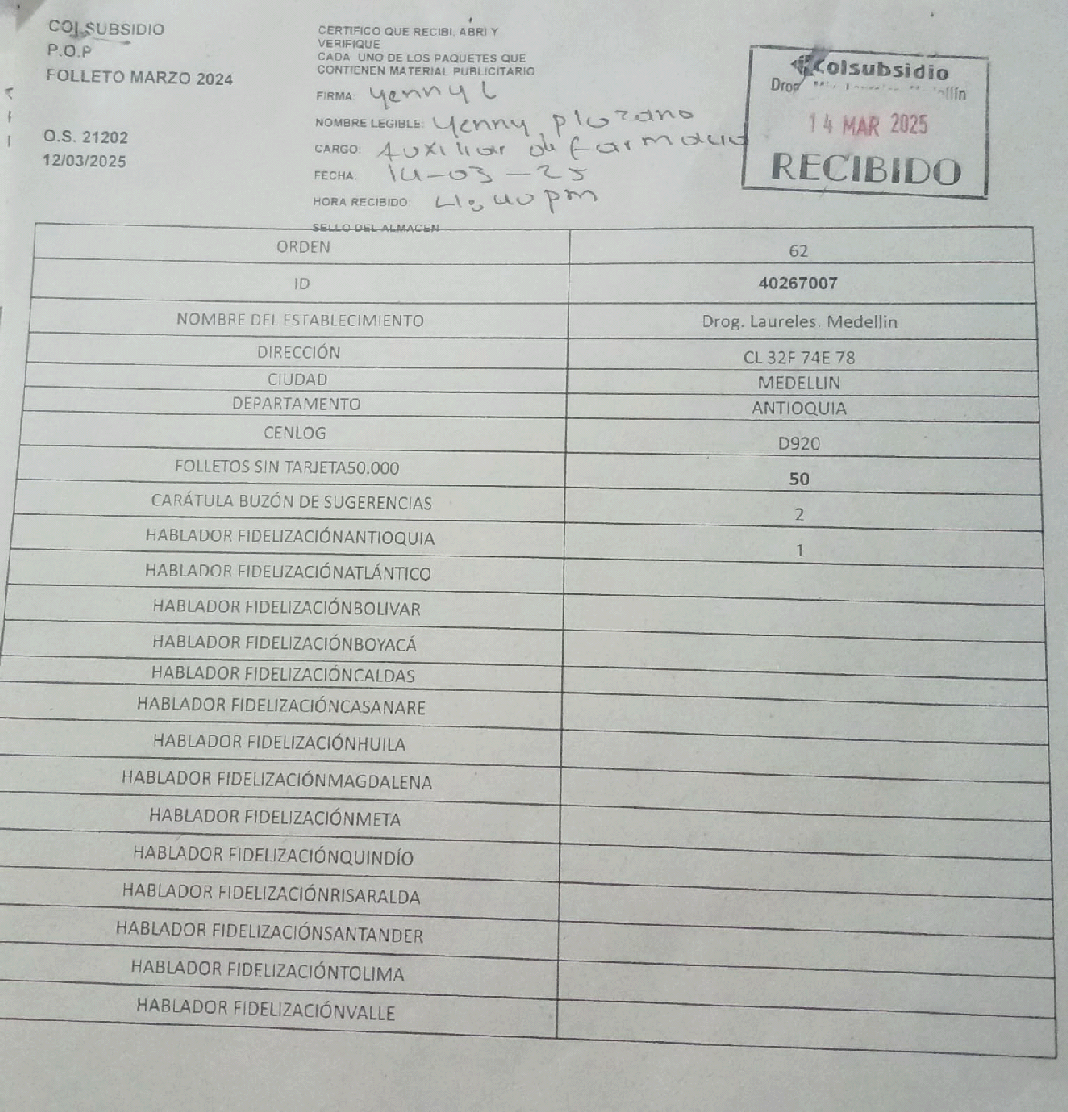 COLSUBSIDIO
P.O.P
FOLLETO MARZO 2024
O.S. 21202
12/03/2025
CERTIFICO QUE RECIBI, ABRI Y
VERIFIQUE
CADA UNO DE LOS PAQUETES QUE
CONTIENEN MATERIAL PUBLICITARIO
FIRMA: Yenny L
NOMBRE LEGIBLE: Yenny, plozano
CARGO: Auxiliar de farmacia
FECHA 14-03-25
HORA RECIBIDO: 4:40 pm
SELLO DEL ALMACEN
Colsubsidio
Drog
14 MAR 2025
RECIBIDO
ORDEN 62
ID 40267007
NOMBRE DEL ESTABLECIMIENTO Drog. Laureles. Medellin
DIRECCIÓN CL 32F 74E 78
CIUDAD MEDELLIN
DEPARTAMENTO ANTIOQUIA
CENLOG D920
FOLLETOS SIN TARJETA50.000 50
CARÁTULA BUZÓN DE SUGERENCIAS 2
HABLADOR FIDELIZACIÓNANTIOQUIA 1
HABLADOR FIDELIZACIÓNATLÁNTICO
HABLADOR FIDELIZACIÓNBOLIVAR
HABLADOR FIDELIZACIÓNBOYACÁ
HABLADOR FIDELIZACIÓNCALDAS
HABLADOR FIDELIZACIÓNCASANARE
HABLADOR FIDELIZACIÓNHUILA
HABLADOR FIDELIZACIÓNMAGDALENA
HABLADOR FIDELIZACIÓNMETA
HABLADOR FIDELIZACIÓNQUINDÍO
HABLADOR FIDELIZACIÓNRISARALDA
HABLADOR FIDELIZACIÓNSANTANDER
HABLADOR FIDELIZACIÓNTOLIMA
HABLADOR FIDELIZACIÓNVALLE